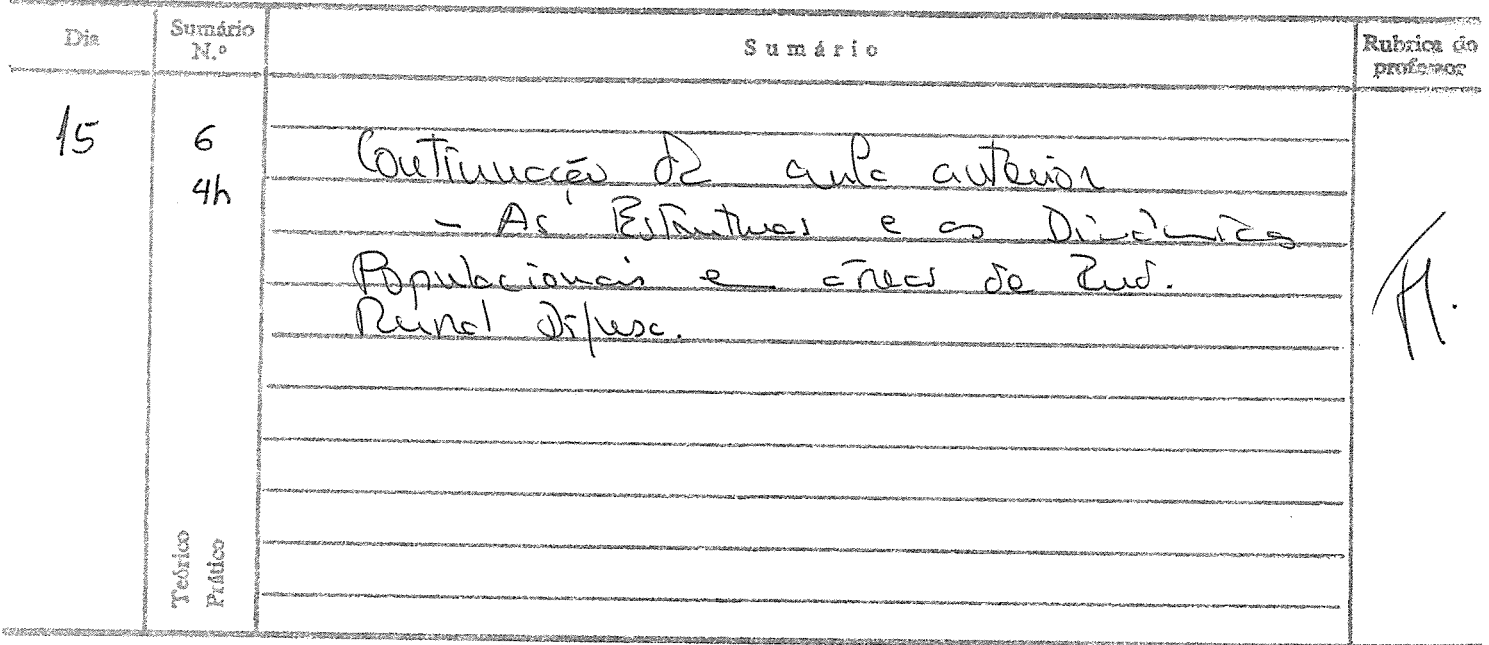 Dia
Sumário N.º
Sumário
Rubrica do professor
15
6
4h
Continuação da aula anterior
- As Estruturas e as Dinâmicas
Populacionais e áreas de Ind.
Rural Difusa.
Teórico
Prático